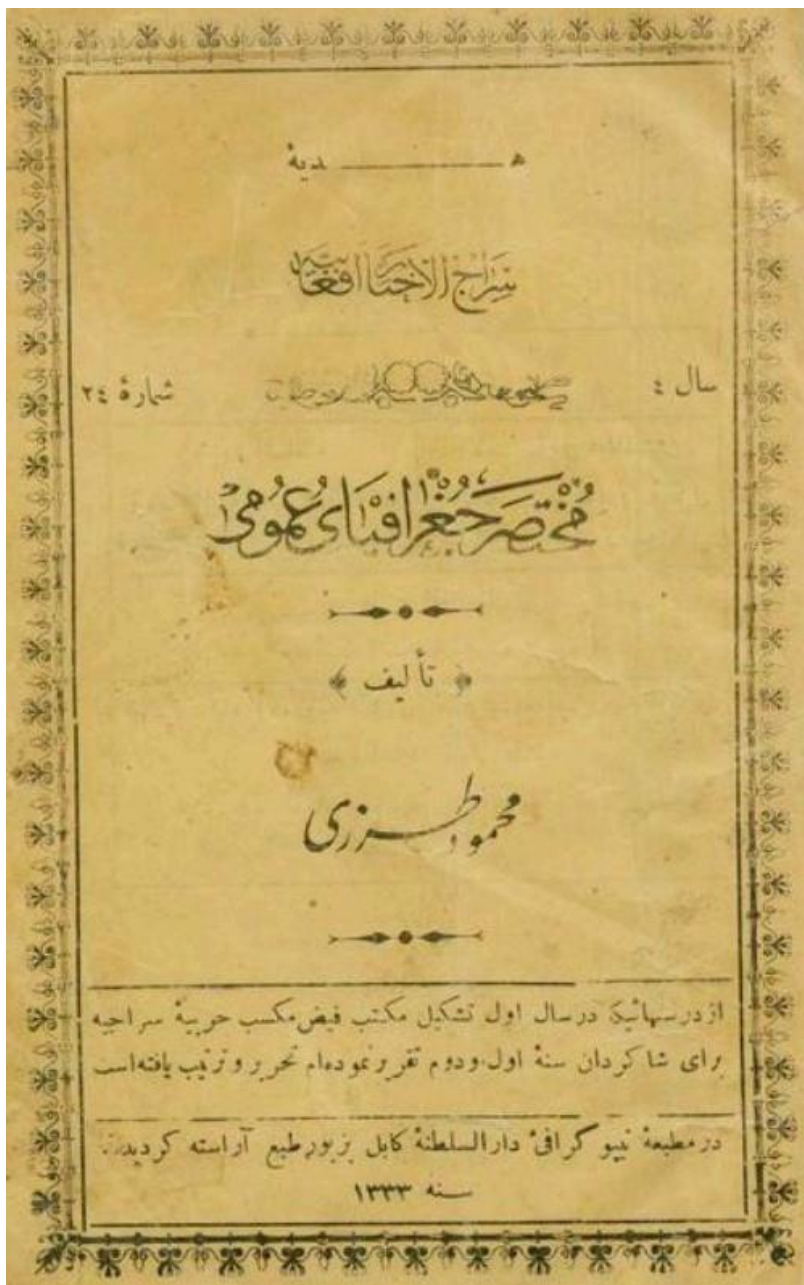 هـــــدیهٔ
سِرَاجُ الاَخبَارِ اَفغَانِیَه
سال ٤
شمارهٔ ٢٤
مُخْتَصَرِ جُغْرَافِیَایِ عُمُومِی
﴿ تألیف ﴾
محمود طرزی
از درسهائیکه در سال اول تشکیل مکتب فیض مکسب حربیهٔ سراجیه
برای شاکردان سنهٔ اول ودوم تقریر نموده‌ام تحریر و ترتیب یافته‌است
در مطبعهٔ تیپو گرافیٔ دار السلطنهٔ کابل بزیور طبع آراسته کردید.
سنه ١٣٣٣